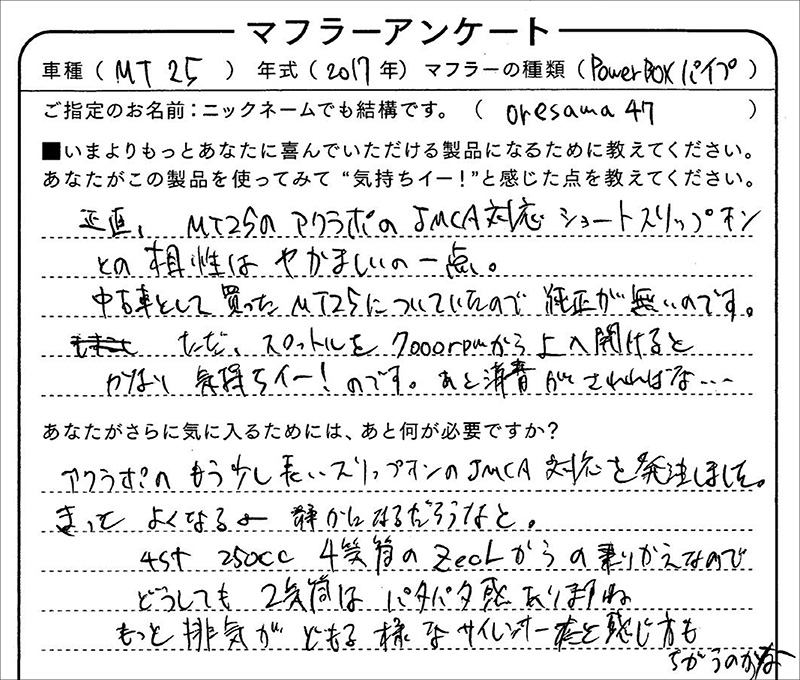 マフラーアンケート
車種（MT 25）年式（2017年）マフラーの種類（PowerBOXパイプ）
ご指定のお名前：ニックネームでも結構です。（oresama47）
■いまよりもっとあなたに喜んでいただける製品になるために教えてください。
あなたがこの製品を使ってみて“気持ちイー！”と感じた点を教えてください。
正直、MT25のアクラポのJMCA対応ショートスリップオン
との相性はやかましいの一点。
中古車として買ったMT25についていたので純正が無いのです。
ただ、スロットルを7000rpmから上へ開けると
かなり気持ちイー！のです。あと消音がされればな…
あなたがさらに気に入るためには、あと何が必要ですか？
アクラポのもう少し長いスリップオンのJMCA対応を発注しました。
きっとよくなる 静かになるだろうなと。
4st 250cc 4気筒のZeeLからの乗りかえなので
どうしても2気筒はパタパタ感ありますね
もっと排気がどもる様なサイレンサーだと感じ方も
ちがうのかな